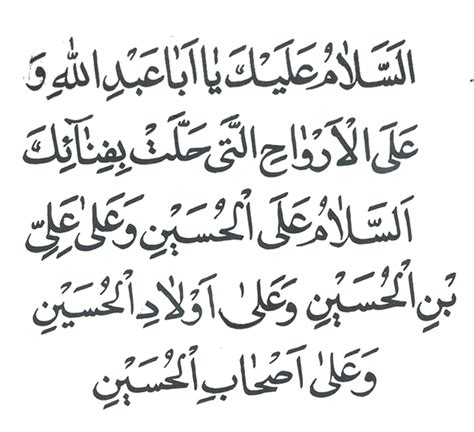 اَلسَّلاٰمُ عَلَيْكَ يٰا اَبٰا عَبْدِ اللّٰهِ وَ
عَلَى الْاَرْوٰاحِ الَّتى حَلَّتْ بِفِنٰائِكَ
اَلسَّلاٰمُ عَلَى الْحُسَيْنِ وَعَلىٰ عَلِىِّ
بْنِ الْحُسَيْنِ وَعَلىٰ اَوْلاٰدِ الْحُسَيْنِ
وَعَلىٰ اَصْحٰابِ الْحُسَيْنِ